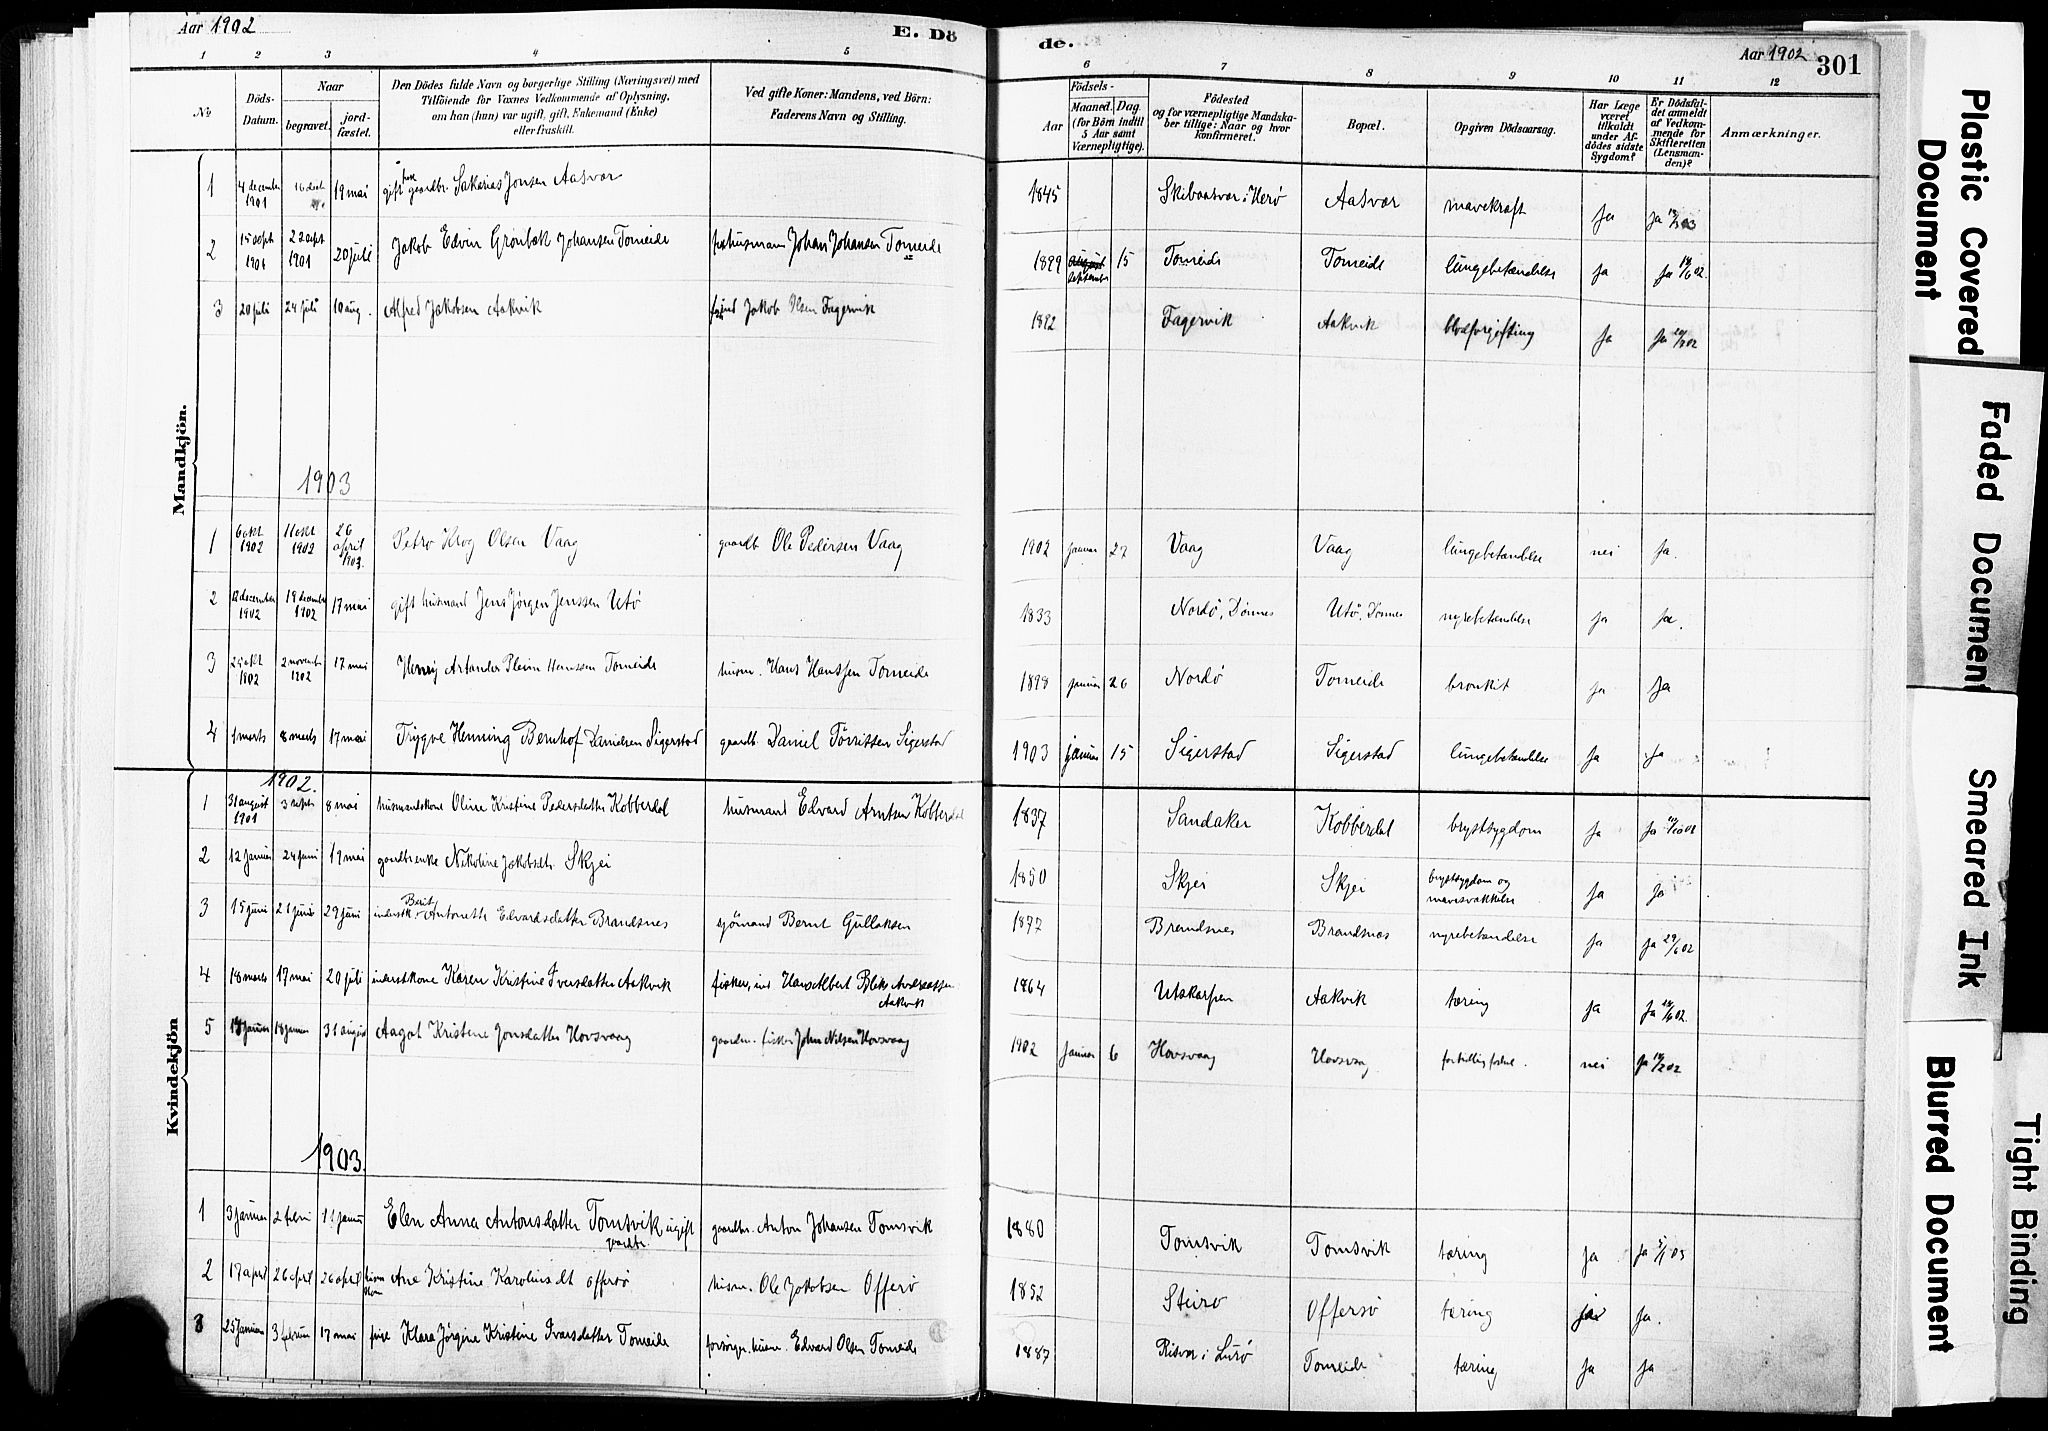 Aar 1902
E. Dö
de.
Aar 1902
301
1 2 3 4 5 6 7 8 9 10 11 12
No
Döds-Datum.
Naar
begravet.
jord-fæstet.
Den Dödes fulde Navn og borgerlige Stilling (Næringsvei) med
Tilföiende for Voxnes Vedkommende af Oplysning,
om han (hun) var ugift, gift, Enkemand (Enke)
eller fraskilt.
Ved gifte Koner: Mandens, ved Börn:
Faderens Navn og Stilling.
Födsels-
Aar
Maaned. Dag.
(for Börn indtil
5 Aar samt
Værnepligtige).
Födested
og for værnepligtige Mandska-
ber tillige: Naar og hvor
konfirmeret.
Bopæl.
Opgiven Dödsaarsag.
Har Læge
været
tilkaldt
under Af-
dödes sidste
Sygdom?
Er Dödsfal-
det anmeldt
af Vedkom-
mende for
Skifteretten
(Lensman-
den)?
Anmærkninger.
Mandkjön.
1 4 december 1901 19 mai gift gaardbr. Sakarias Jonsen Aasvær 1845 Skibaasvær i Herö Aasvær mavekræft Ja Ja
2 15 sept 1901 22 sept 1901 20 juli Jakob Edvin Grönbæk Johansen Tomeide husmann Johan Johansen Tomeide 1899 september 15 Tomeide Tomeide lungebetændelse Ja Ja
3 20 juli 24 juli 10 aug. Alfred Jakobsen Aakvik Jakob Olsen Fagervik 1892 Fagervik Aakvik blodforgiftning Ja Ja
1903
1 6 okt 1902 11 okt 1902 26 april 1903. Petro Krog Olsen Vaag gaardb. Ole Pedersen Vaag 1902 januar 27 Vaag Vaag lungebetændelse nei Ja.
2 12 december 1902 19 december 1902 17 mai gift husmand Jens Jörgen Jenssen Utö 1833 Nordö, Dönnes Utö, Dönnes nyrebetændelse Ja Ja.
3 1902 2 november 1902 17 mai Hanssen Tomeide husm. Hans Hanssen Tomeide 1898 januar 26 Nordö Tomeide bronkit Ja Ja
4 1 marts 8 marts 17 mai Trygve Henning Bernhof Danielsen Sigerstad gaardb. Daniel Törrissen Sigerstad 1903 januar 15 Sigerstad Sigerstad lungebetændelse Ja Ja
Kvindekjön
1902.
1 31 august 1901 3 septr 8 mai husmandskone Oline Kristine Pedersdatter Kobberdal husmand Edvard Arntsen Kobberdal 1837 Sandaker Kobberdal brystsygdom Ja Ja
2 12 januar 19 mai gaardbrenke Nikoline Jakobsdtr Skjei 1850 Skjei Skjei brystsygdom og mavesvækkelse Ja Ja
3 15 juni 21 juni 29 juni Berit Antonette Edvardsdatter Brandsnes sjömand Bernt Gullaksen 1877 Brandsnes Brandsnes nyrebetændelse Ja Ja 29/6 02
4 18 marts 17 mai 20 juli inderstkone Karen Kristine Iversdatter Aakvik fisker, ind. Hans Albert Blik Andreassen Aakvik 1864 Utskarpen Aakvik tæring Ja Ja
5 januar 18 januar 31 august Aagot Kristine Jonsdatter Hovsvaag fisker John Nilsen Hovsvaag 1902 januar 6 Hovsvaag Hovsvaag for tidlig født. nei Ja
1903.
1 3 januar 11 januar Elen Anna Antonsdatter Tomsvik, ugift gaardbr. Anton Johansen Tomsvik 1880 Tomsvik Tomsvik tæring Ja Ja 5/1 03
2 17 april 26 april 26 april husm kone Ane Kristine Karoliusdt Offersö husm. Ole Jakobsen Offersö 1852 Steirö Offersö tæring Ja.
3 25 januar 3 februar 17 mai pige Klara Jörgine Kristine Ivarsdatter Tomeide forsörger. husm. Edvard Olsen Tomeide 1887 Risvær i Lurö Tomeide tæring Ja Ja
Plastic Covered
Document
Faded Document
Smeared Ink
Blurred Document
Tight Binding